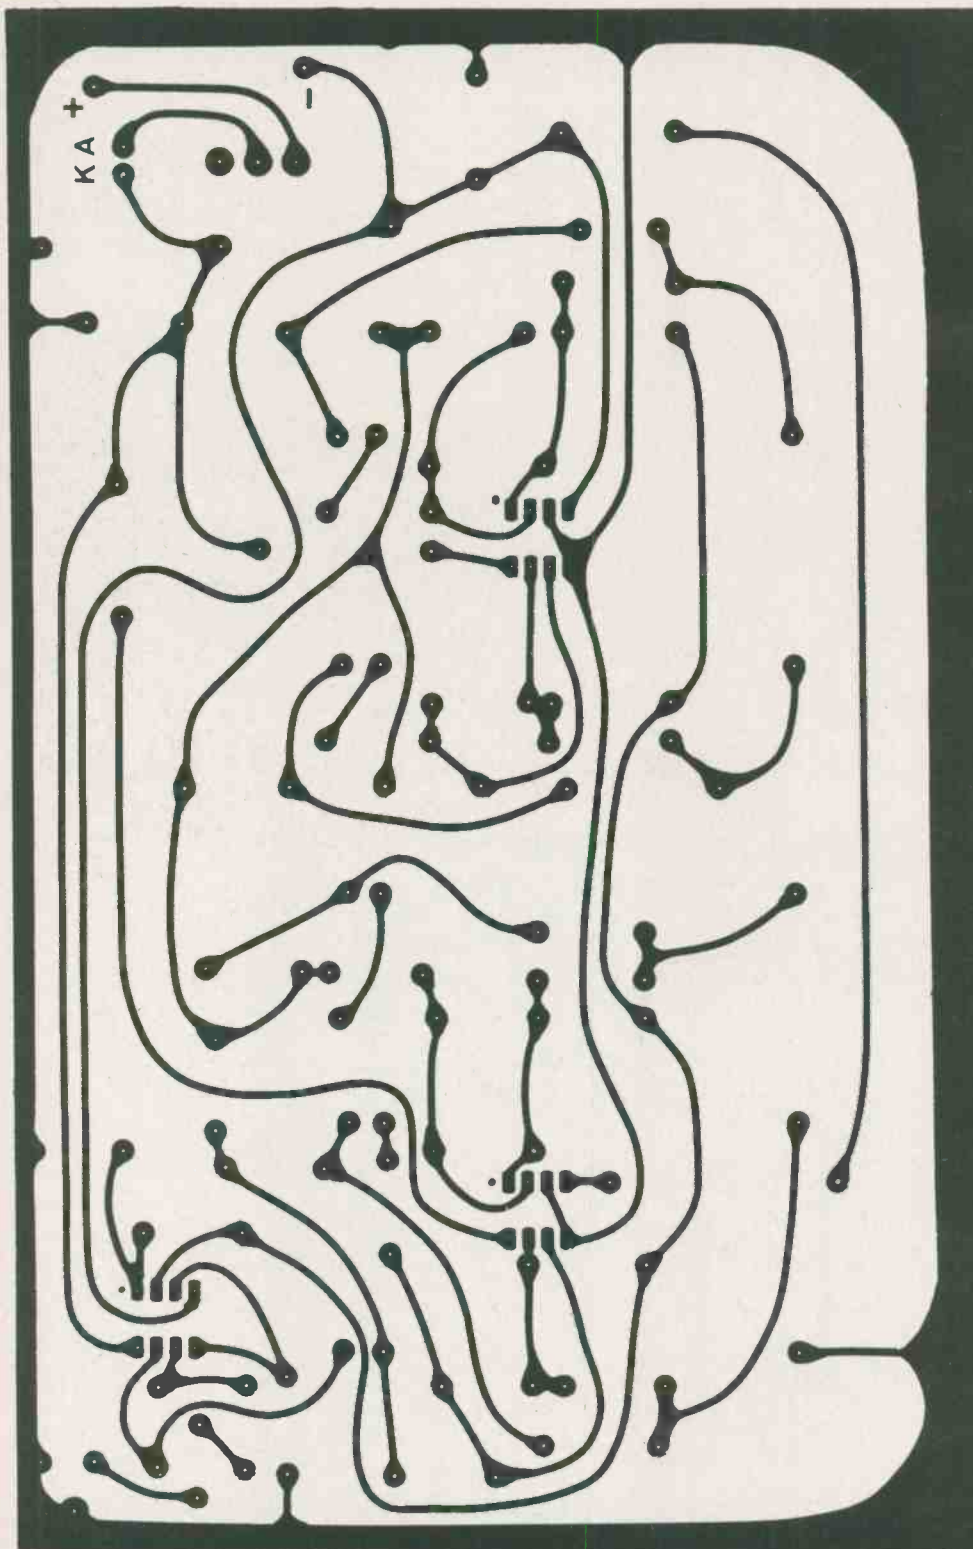 +
-
K A